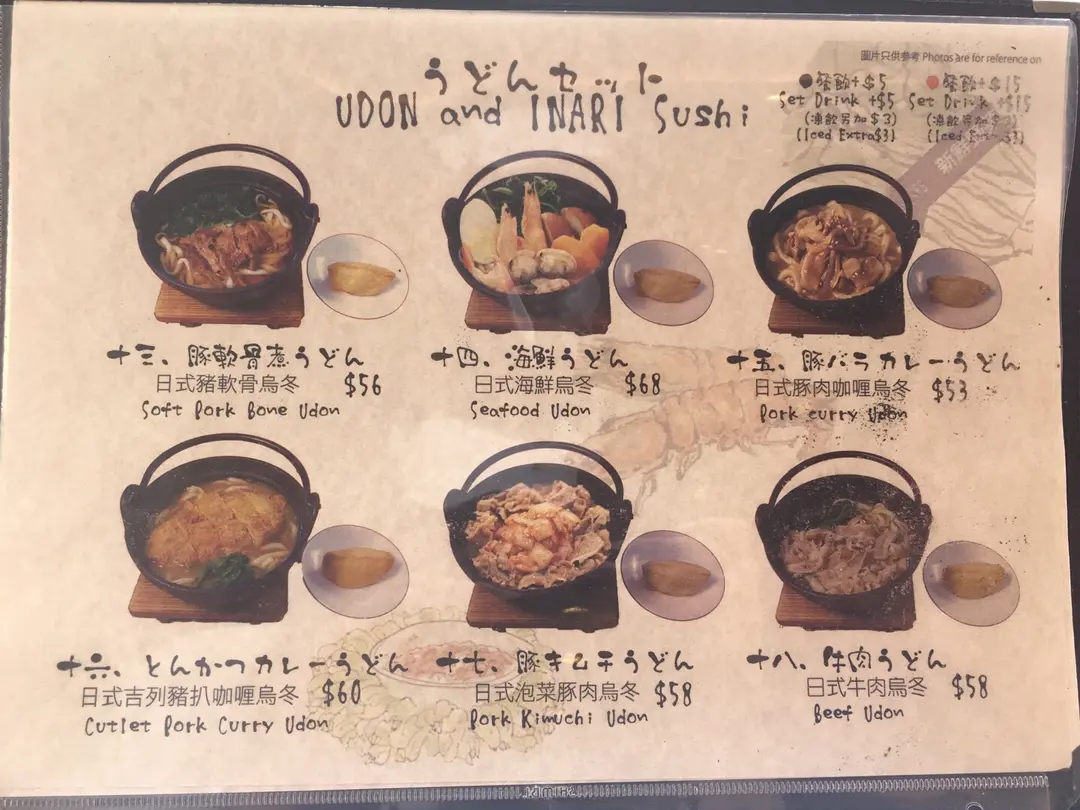 圖片只供參考 Photos are for reference on
うどんセット
UDON and INARI Sushi
餐飲+$5
Set Drink +$5
(凍飲另加$3)
(Iced Extra$3)
餐飲+$15
Set Drink +$15
(凍飲另加$3)
(Iced Extra$3)
十三、豚軟骨煮うどん
日式豬軟骨烏冬 $56
Soft Pork Bone Udon
十四、海鮮うどん
日式海鮮烏冬 $68
Seafood Udon
十五、豚バラカレーうどん
日式豚肉咖喱烏冬 $53
Pork curry Udon
十六、とんかつカレーうどん
日式吉列豬扒咖喱烏冬 $60
Cutlet Pork Curry Udon
十七、豚キムチうどん
日式泡菜豚肉烏冬 $58
Pork Kimuchi Udon
十八、牛肉うどん
日式牛肉烏冬 $58
Beef Udon